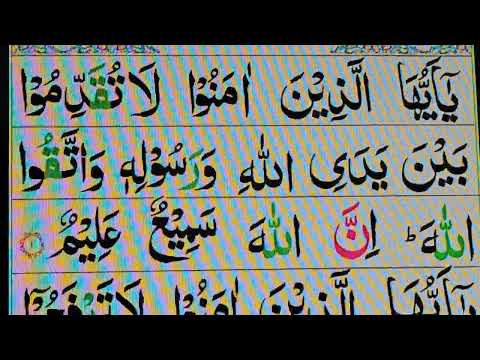 يٰۤاَيُّهَا الَّذِيْنَ اٰمَنُوْا لَا تُقَدِّمُوْا
بَيْنَ يَدَيِ اللّٰهِ وَرَسُوْلِهٖ وَاتَّقُوا
اللّٰهَ ؕ اِنَّ اللّٰهَ سَمِيْعٌ عَلِيْمٌ ۝۱
يٰۤاَيُّهَا الَّذِيْنَ اٰمَنُوْا لَا تَرْفَعُوْۤا